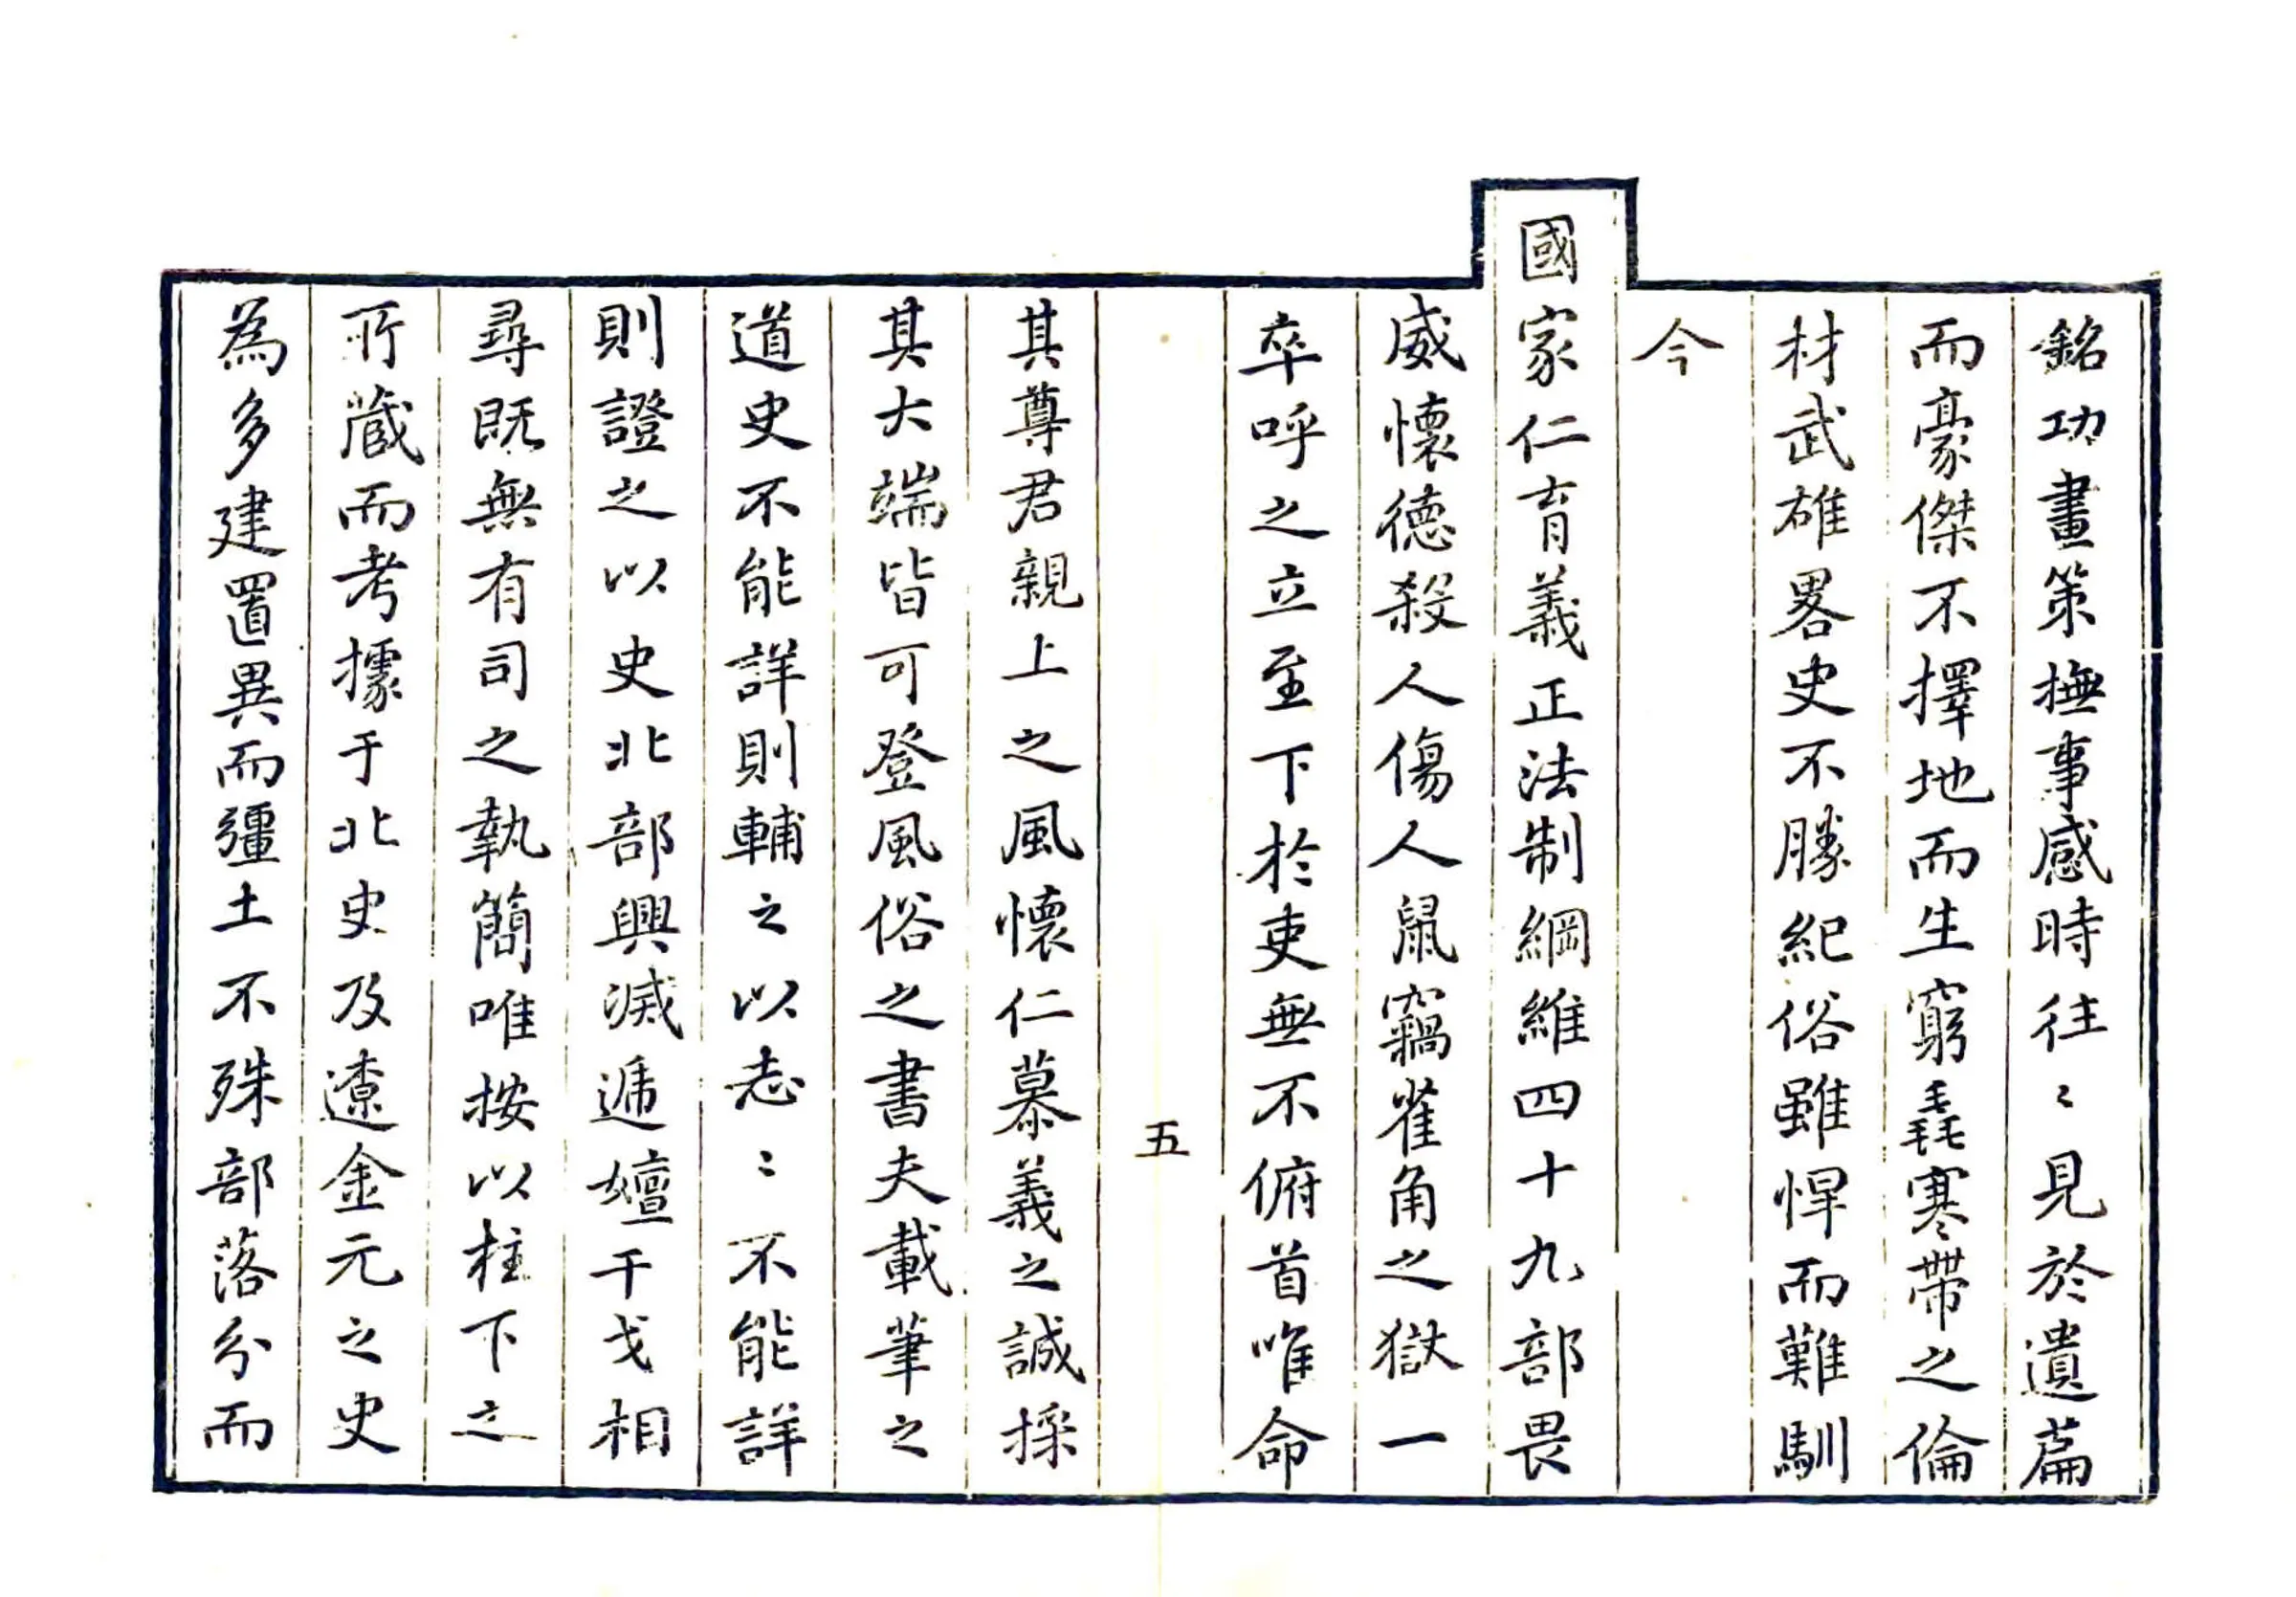 銘功畫策撫事感時往〻見於遺篇
而豪傑不擇地而生窮毳寒帶之倫
材武雄畧史不勝紀俗雖悍而難馴
今
國家仁育義正法制綱維四十九部畏
威懷德殺人傷人鼠竊雀角之獄一
卒呼之立至下於吏無不俯首唯命
五
其尊君親上之風懷仁慕義之誠採
其大端皆可登風俗之書夫載筆之
道史不能詳則輔之以志〻不能詳
則證之以史北部興滅遞嬗干戈相
尋既無有司之執簡唯按以柱下之
所蔵而考據于北史及遼金元之史
為多建置異而疆土不殊部落分而